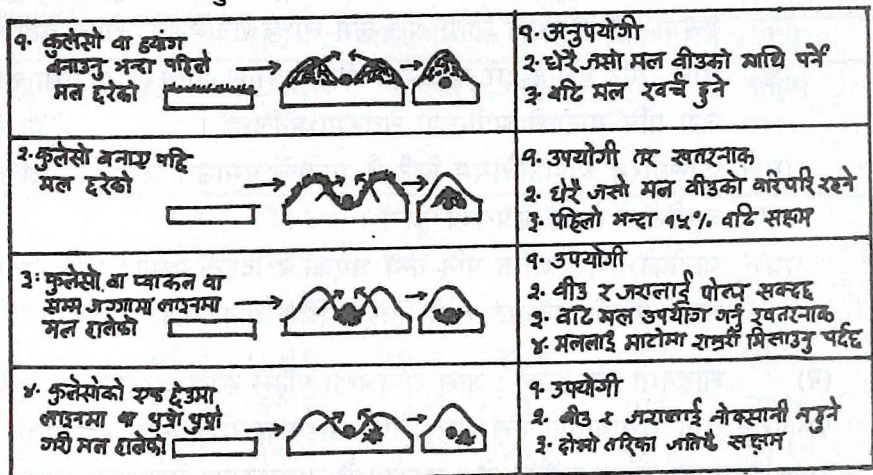 १. कुलेसो वा ड्याङ
बनाउनु भन्दा पहिले
मल छरेको
१. अनुपयोगी
२. धेरै जसो मल बीउको माथि पर्ने
३. बढि मल खर्च हुने
२. कुलेसो बनाए पछि
मल छरेको
१. उपयोगी तर खतरनाक
२. धेरै जसो मल बीउको वरिपरि रहने
३. पहिलो भन्दा १५% बढि सक्षम
३. कुलेसो वा प्याकेल वा
सम्म जग्गामा लाइनमा
मल हालेको
१. उपयोगी
२. बीउ र जरालाई पोल्न सक्दछ
३. बढि मल उपयोग गर्नु खतरनाक
४. मललाई माटोमा राम्ररी मिसाउनु पर्दछ
४. कुलेसोको एक छेउमा
लाइनमा वा थुप्रो थुप्रो
गरी मल हालेको
१. उपयोगी
२. बीउ र जरालाई नोक्सानी नहुने
३. दोस्रो तरिका जतिकै सक्षम